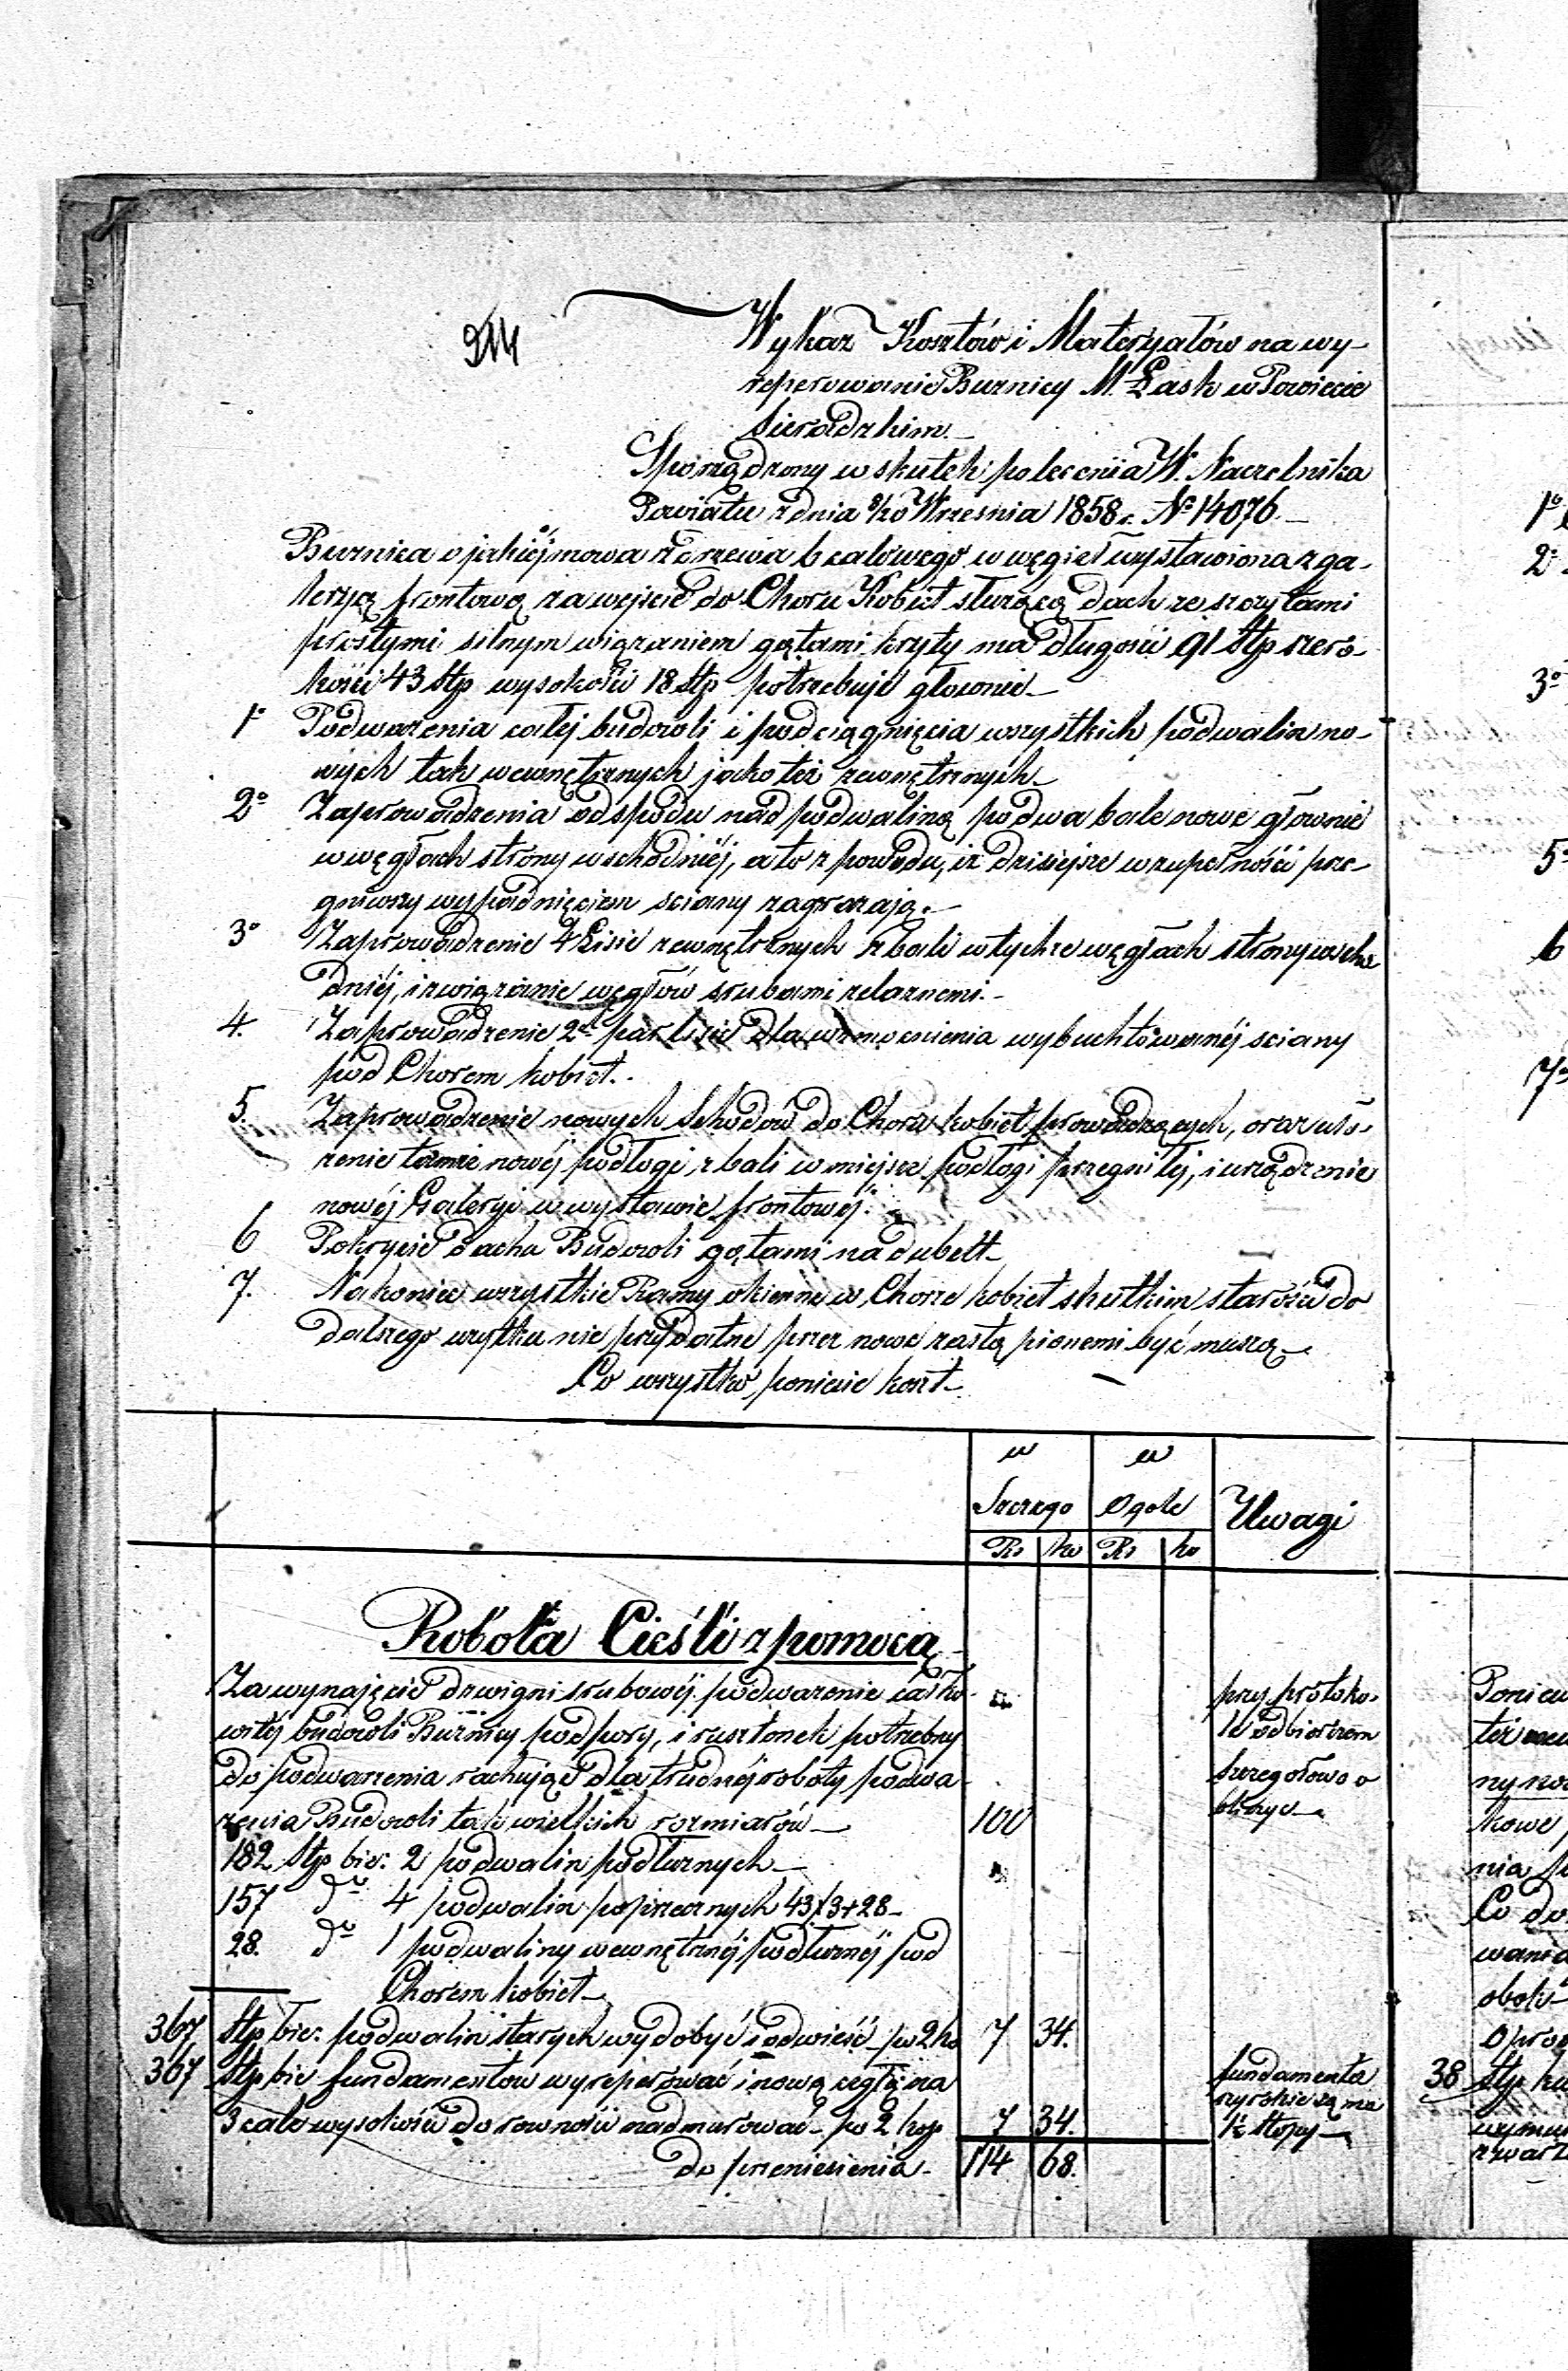 214
Wykaz Kosztów i Materyałów na wy-
reperowanie Buznicy M. Łask w Powiecie
Sieradzkim.
Sporządzony w skutek polecenia W. Naczelnika
Powiatu z dnia 8/20 Września 1858 r. No 14076.
Buznica o jakiéj mowa z drzewa bcalowego w węgieł wystawiona z ga-
leryą frontową za wejście do Choru Kobiet służącą dach ze szczytami
prostymi silnym wiązaniem gątami kryty ma długości 91 Stp szero-
kości 43 Stp wysokości 18 Stp potrzebuje głownie
1o Podważenia całej budowli i podciągnięcia wszystkich podwalin no-
wych tak wewnętrznych jako też zewnętrznych
2o Zaprowadzenia od spodu nad podwaliną po dwa bale nowe głownie
w węgłach strony wschodniéj, a to z powodu, iż dzisiejsze w zupełności prze-
gniwszy wypadnięciem sciany zagrazają.
3o Zaprowadzenie 4 Lisic zewnętrznych z bali w tychże węgłach strony wscho
dniéj, i związanie węgłów srubami zelaznemi.
4. Zaprowadzenie 2ch par lisic dla wzmocnienia wybuchtowanéj sciany
pod Chorem kobiet.
5. Zaprowadzenie nowych schodów do Choru kobiet prowadzących, oraz uło-
zenie tamże nowéj podłogi z bali w miejsce podłogi przegniłej, i urządzenie
nowéj Galeryi w wystawie frontowéj.
6 Pokrycie dachu Budowli gątami na dubelt
7. Nakoniec wszystkie Ramy okienne w Chorze kobiet skutkiem starości do
dalszego uzytku nie przydatne przez nowe zastąpionemi być muszą
Co wszystko poniesie koszt
w w
Szczego Ogole Uwagi
Rs ko Rs ko
Robota Cieśli z pomocą
Za wynajęcie dzwigni srubowéj podwazenie całko-
witéj budowli Buznicy podpory, i rusztonek potrzebny
do podwazenia rachując dla trudnéj roboty podwa-
zenia Budowli tak wielkich rozmiarów 100
przy protoko-
le odbiorczem
szczegołowo o
bliczyc
182 Stp bie: 2 podwalin podłuznych
157 do 4 podwalin poprzecznych 43x3+28
28. do 1 podwaliny wewnętrznéj podłuznéj pod
Chorem kobiet
367 Stp bie: podwalin starych wydobyć i odnieść po 2 ko 7 34.
367 Stp bie fundamentow wyreperować i nową cegłą na
3 cale wysokości do rowności nadmurować po 2 kop 7 34.
fundamenta
szyrokie są na
1½ stopy
do przeniesienia 114 68.
1o
2o
3o
5o
6
7o
też
nia
Co
38 Stp